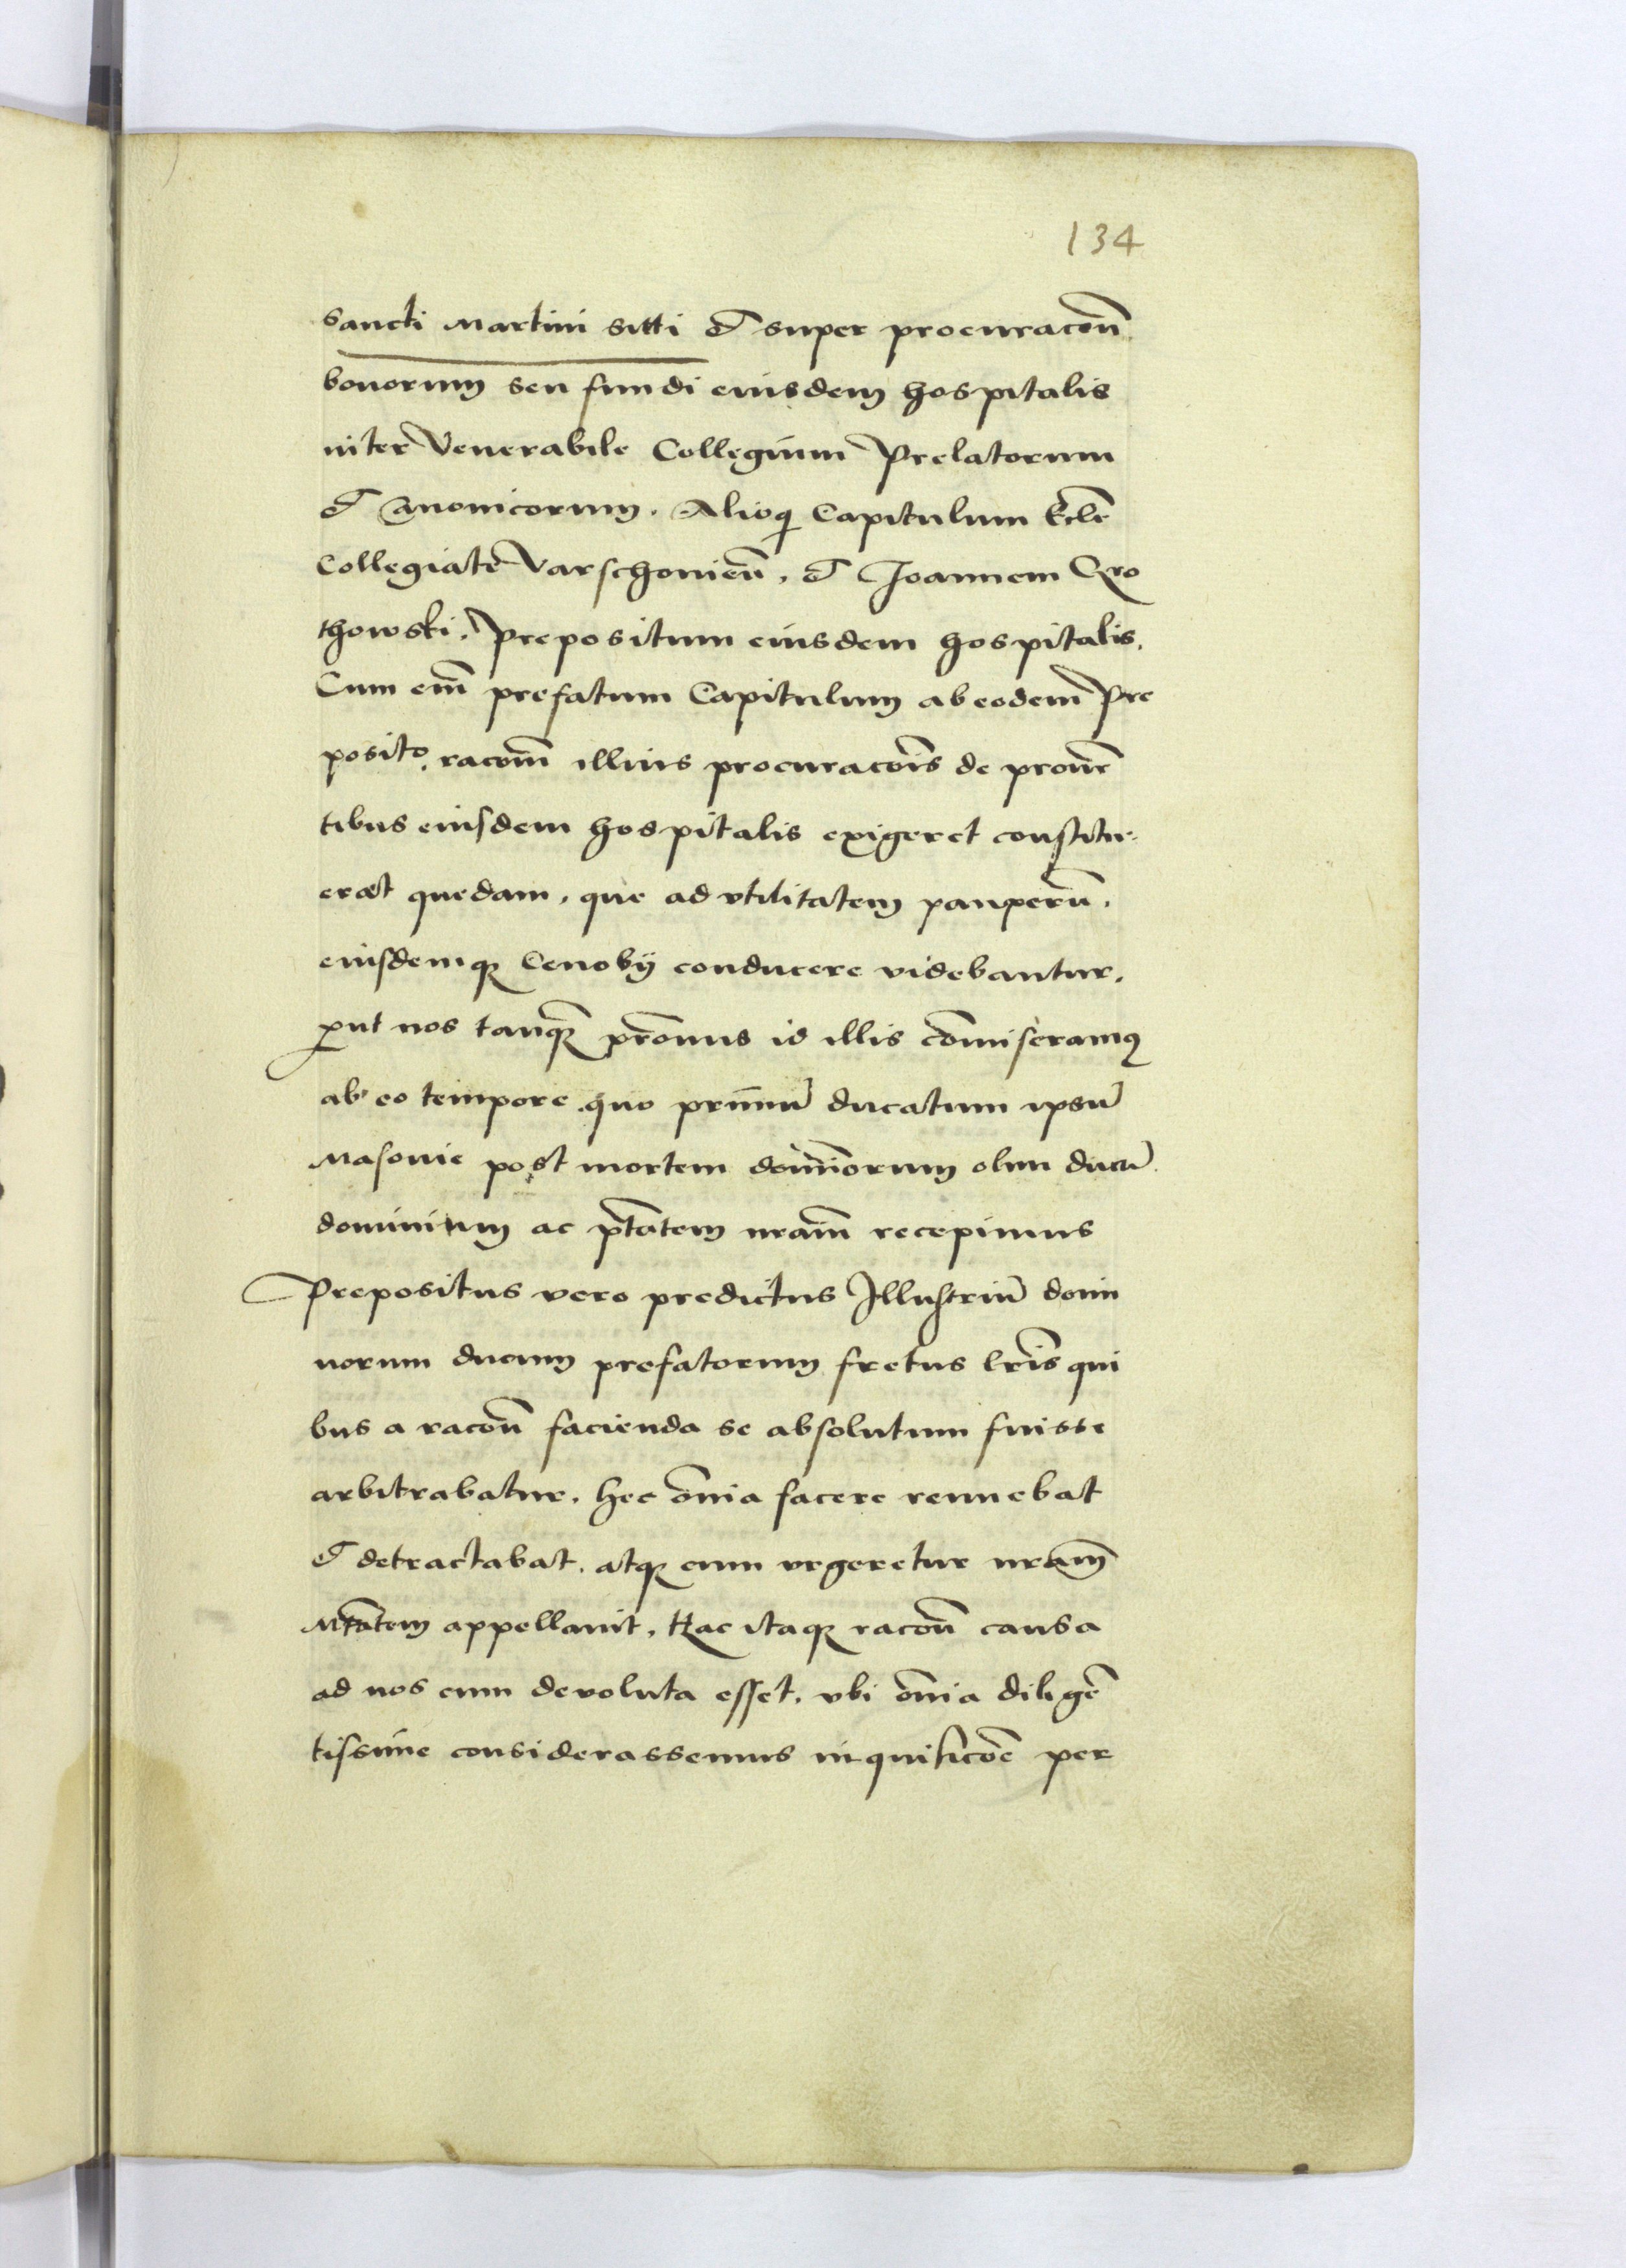 134
Sancti Martini sitti et super procuracōn̄
bonorum seu fundi eiusdem hospitalis
inter Venerabile Collegium Prelatorum
et Canonicorum. Alioq Capitulum Eclē
Collegiate Varschovien̄, et Joannem Qro
thowski, Prepositum eiusdem hospitalis,
Cum em̄ prefatum Capitulum ab eodem Pre
posito, racōm̄ illius procuracōis de prouē
tibus eiusdem hospitalis exigeret constitu-
eret quedam, que ad vtilitatem pauperū,
eiusdemq Cenobij conducere videbantur,
put nos tanq̄ pronus id illis cōmiseramq
ab eo tempore quo primū ducatum ipsū
Masouie post mortem domīorum olim ducū
dominium ac ptātem nrām recepimus
Prepositus vero predictus Illustriū domi
norum ducum prefatorum fretus lris̄ qui
bus a racōn̄ facienda se absolutum fuisse
arbitrabatur, hec om̄ia facere rennebat
et detractabat, atq cum vrgeretur nrām
Mtātem appellauit, Hac itaq racōn̄ causa
ad nos cum devoluta esset, vbi om̄ia diligē
tissime considerassemus inquisicōe per